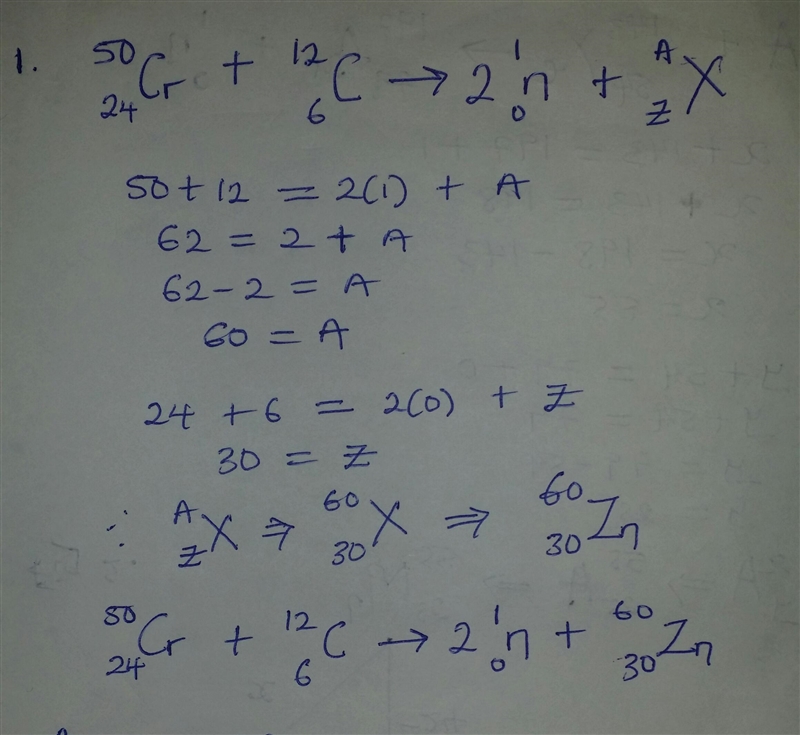 1. ⁵⁰₂₄Cr + ¹²₆C → 2 ¹₀n + ᴬ_Z X
50 + 12 = 2(1) + A
62 = 2 + A
62 - 2 = A
60 = A
24 + 6 = 2(0) + Z
30 = Z
∴ ᴬ_Z X ⇒ ⁶⁰₃₀X ⇒ ⁶⁰₃₀Zn
⁵⁰₂₄Cr + ¹²₆C → 2 ¹₀n + ⁶⁰₃₀Zn